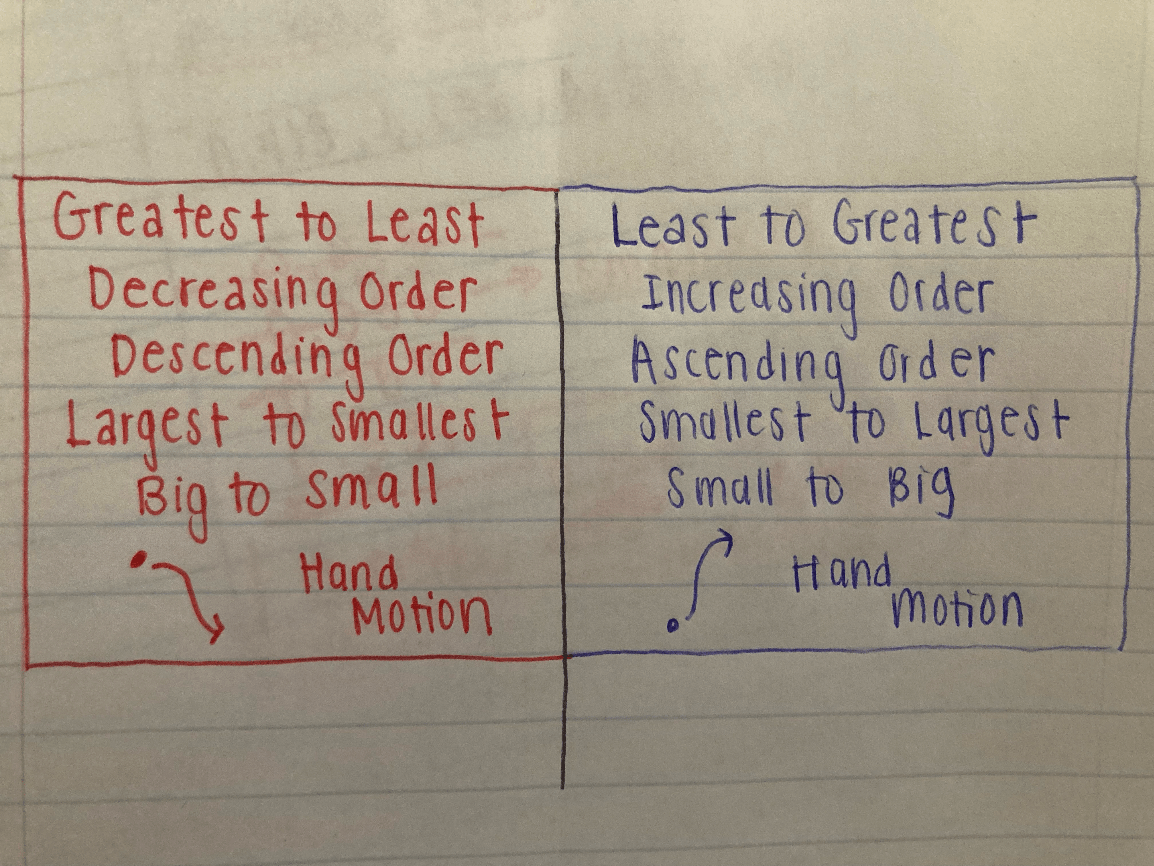 Greatest to Least
Decreasing Order
Descending Order
Largest to Smallest
Big to Small
Hand
Motion
Least to Greatest
Increasing Order
Ascending Order
Smallest to Largest
Small to Big
Hand
Motion